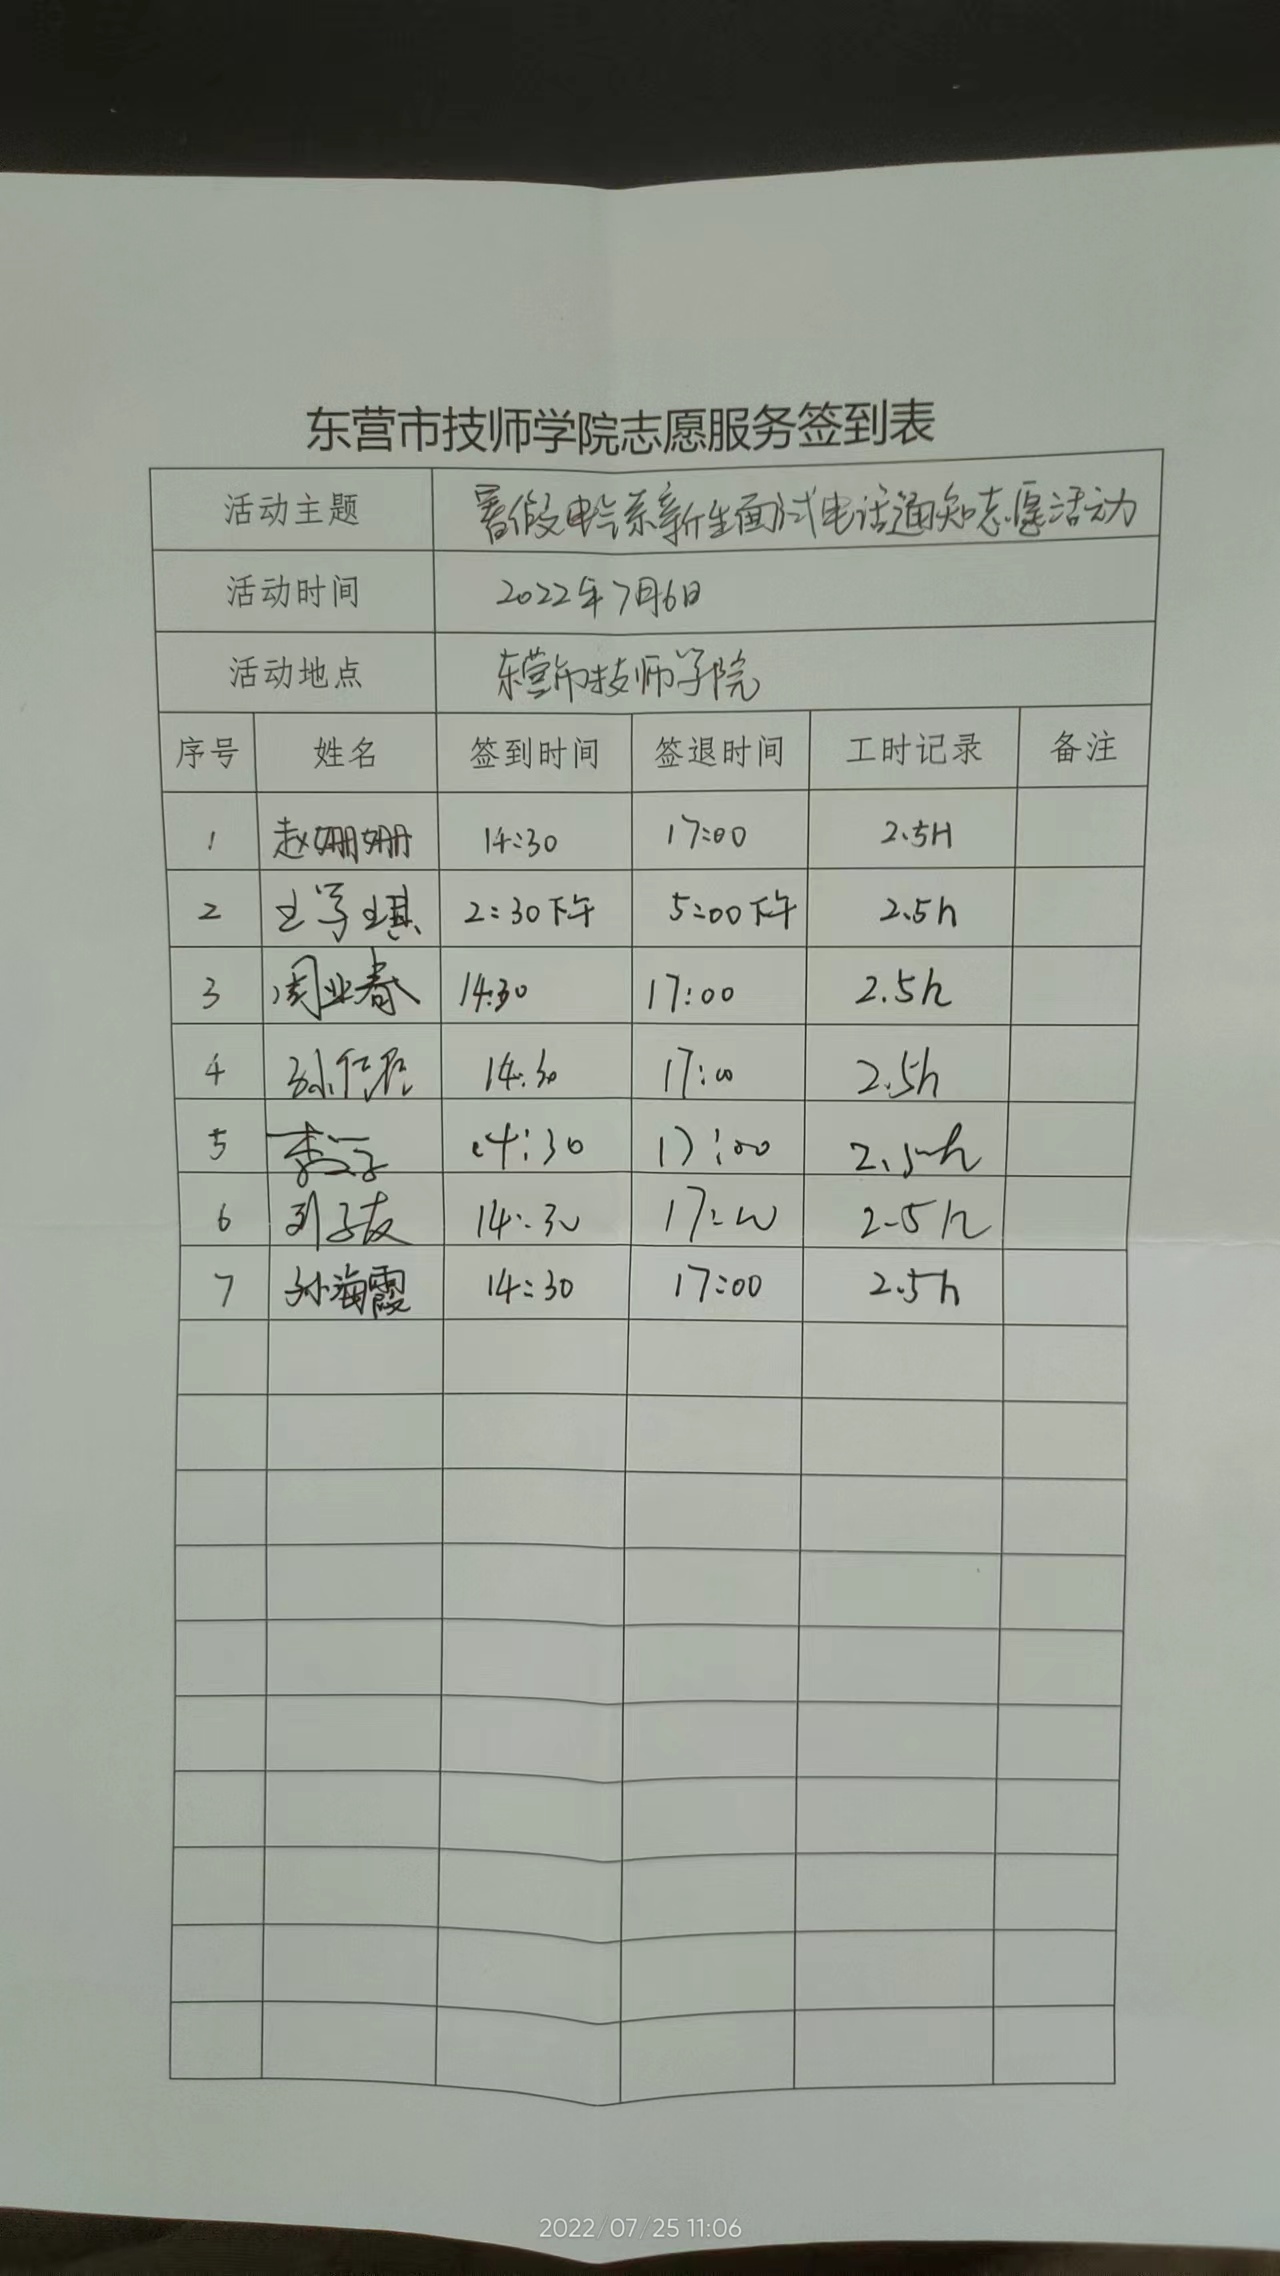 东营市技师学院志愿服务签到表
活动主题 暑假电气系新生面试电话通知志愿活动
活动时间 2022年7月6日
活动地点 东营市技师学院
序号 姓名 签到时间 签退时间 工时记录 备注
1 赵姗姗 14:30 17:00 2.5H
2 王学琪 2:30下午 5:00下午 2.5h
3 周业春 14:30 17:00 2.5h
4 14:30 17:00 2.5h
5 14:30 17:00 2.5h
6 刘子友 14:30 17:00 2.5h
7 孙海霞 14:30 17:00 2.5h
2022/07/25 11:06